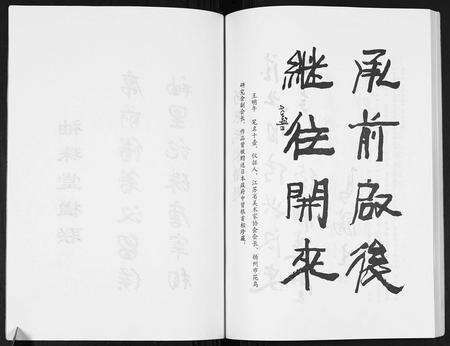 承前啟後
継往開來
王明午 笔名十 、仪征人、江苏省美术家协会会员、扬州市花鸟
研究会副会长，作品曾被赠送日本政府中曾根首相珍藏。